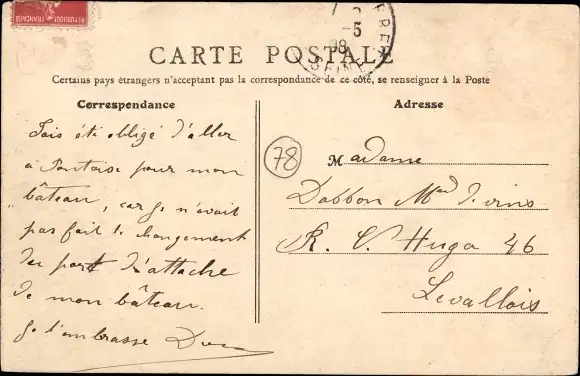 REPUBLIQUE FRANÇAISE
5
08
SEINE
CARTE POSTALE
Certains pays étrangers n'acceptant pas la correspondance de ce côté, se renseigner à la Poste
Correspondance
Adresse
78
J'ais été obligé d'aller
à Pontoise pour mon
bâteau, car je n'avait
pas fait le changement
du port d'attache
de mon bâteau.
Je t'embrasse
Madame
Dabbon Md de vins
R. V. Hugo 46
Levallois